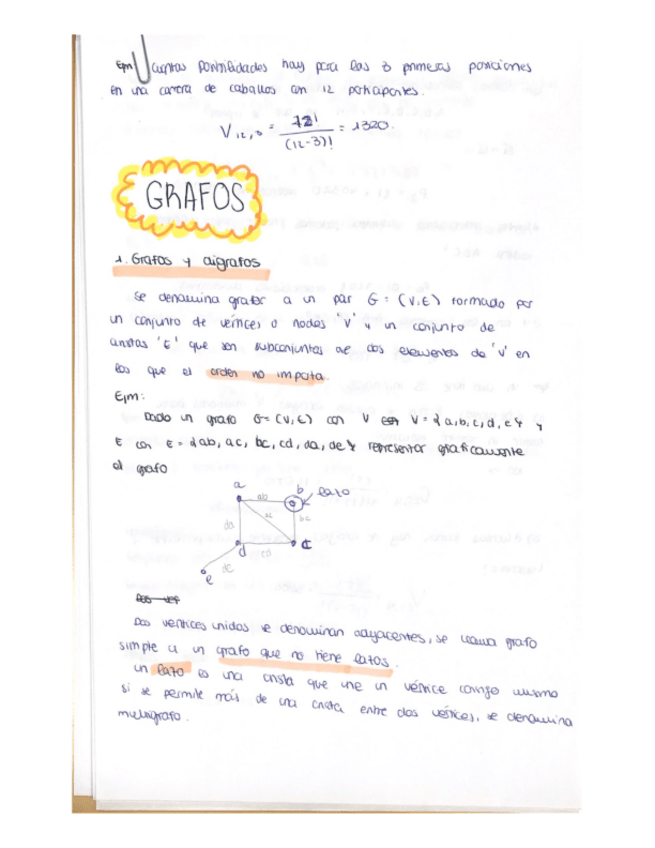 Ejm Cuantas posibilidades hay para las 3 primeras posiciones
en una carrera de caballos con 12 participantes.
V12,3 = 12! / (12-3)! = 1320.
GRAFOS
1. Grafos y digrafos
Se denomina grafo a un par G = (V,E) formado por
un conjunto de vértices o nodos "V" y un conjunto de
aristas 'E' que son subconjuntos de dos elementos de 'V' en
los que el orden no importa.
Ejm:
Dado un grafo G=(V,E) con V con V = {a,b,c,d,e} y
E con E = {ab, ac, bc, cd, da, de} representar graficamente
el grafo
a b lazo
ab
ac
bc
da
d cd c
de
e
Dos vertices unidos se denominan adyacentes, se llama grafo
simple a un grafo que no tiene lazos.
un lazo es una arista que une un vértice consigo mismo
si se permite más de una arista entre dos vértices, se denomina
multigrafo.